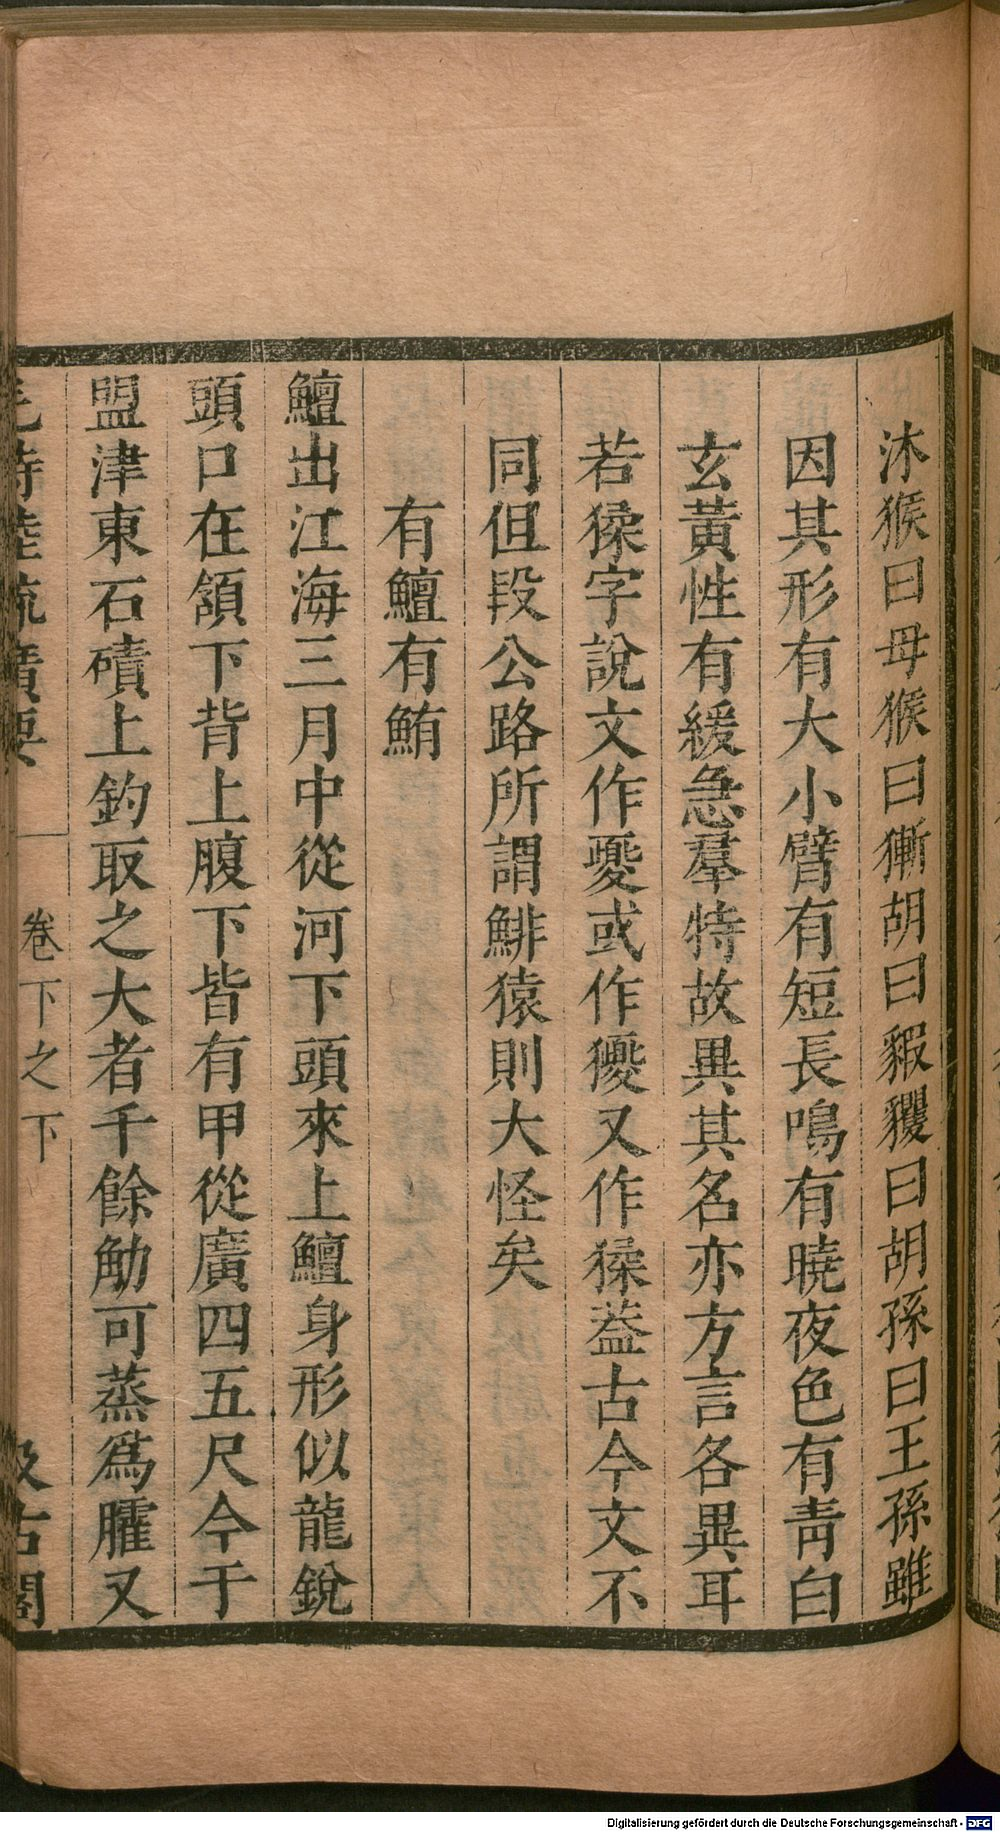 沐猴曰母猴曰獑胡曰貑貜曰胡孫曰王孫雖
因其形有大小臂有短長鳴有曉夜色有靑白
玄黃性有緩急羣特故異其名亦方言各異耳
若猱字說文作夒或作獿又作㺒葢古今文不
同但段公路所謂鯡猿則大怪矣
有鱣有鮪
鱣出江海三月中從河下頭來上鱣身形似龍銳
頭口在頷下背上腹下皆有甲從廣四五尺今于
盟津東石磧上釣取之大者千餘觔可蒸爲臛又
毛詩陸疏廣要
卷下之下
汲古閣
Digitalisierung gefördert durch die Deutsche Forschungsgemeinschaft - DFG